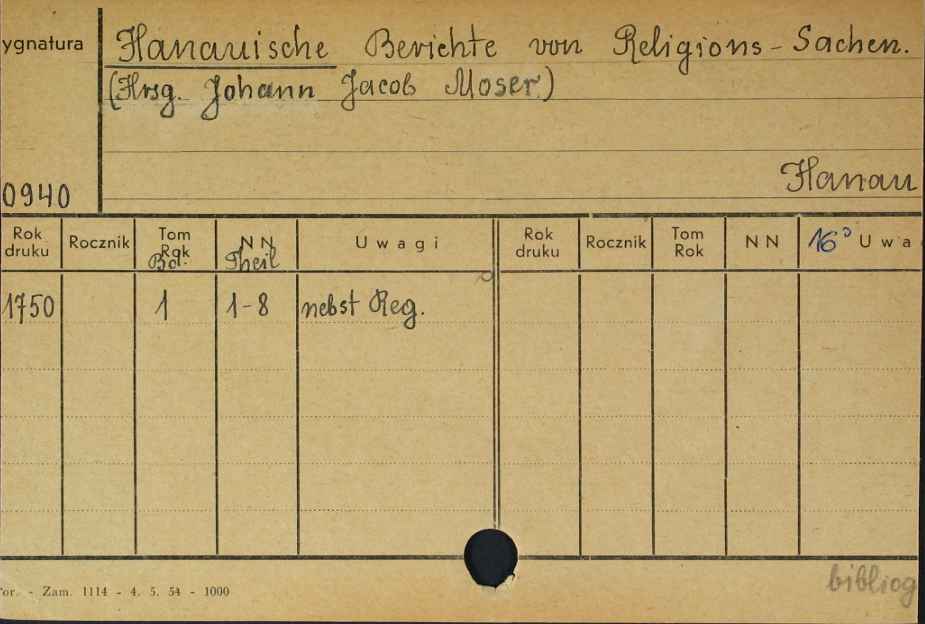 ygnatura
Hanauische Berichte von Religions-Sachen.
(Hrsg. Johann Jacob Moser)
Hanau
0940
Rok druku Rocznik Tom Rok Bd. NN Theil Uwagi Rok druku Rocznik Tom Rok NN 16° Uwa
1750 1 1-8 nebst Reg.
bibliog
or. - Zam. 1114 - 4. 5. 54 - 1000